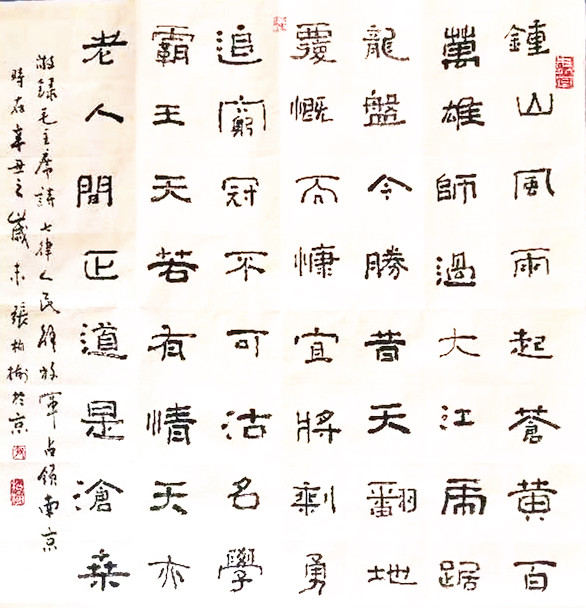 鍾山風雨起蒼黄百
萬雄師過大江虎踞
龍盤今勝昔天翻地
覆慨而慷宜將剩勇
追窮冠不可沽名學
霸王天若有情天亦
老人間正道是滄桑
敬録毛主席詩七律人民解放軍占領南京
時在辛丑之歲末張柏於京